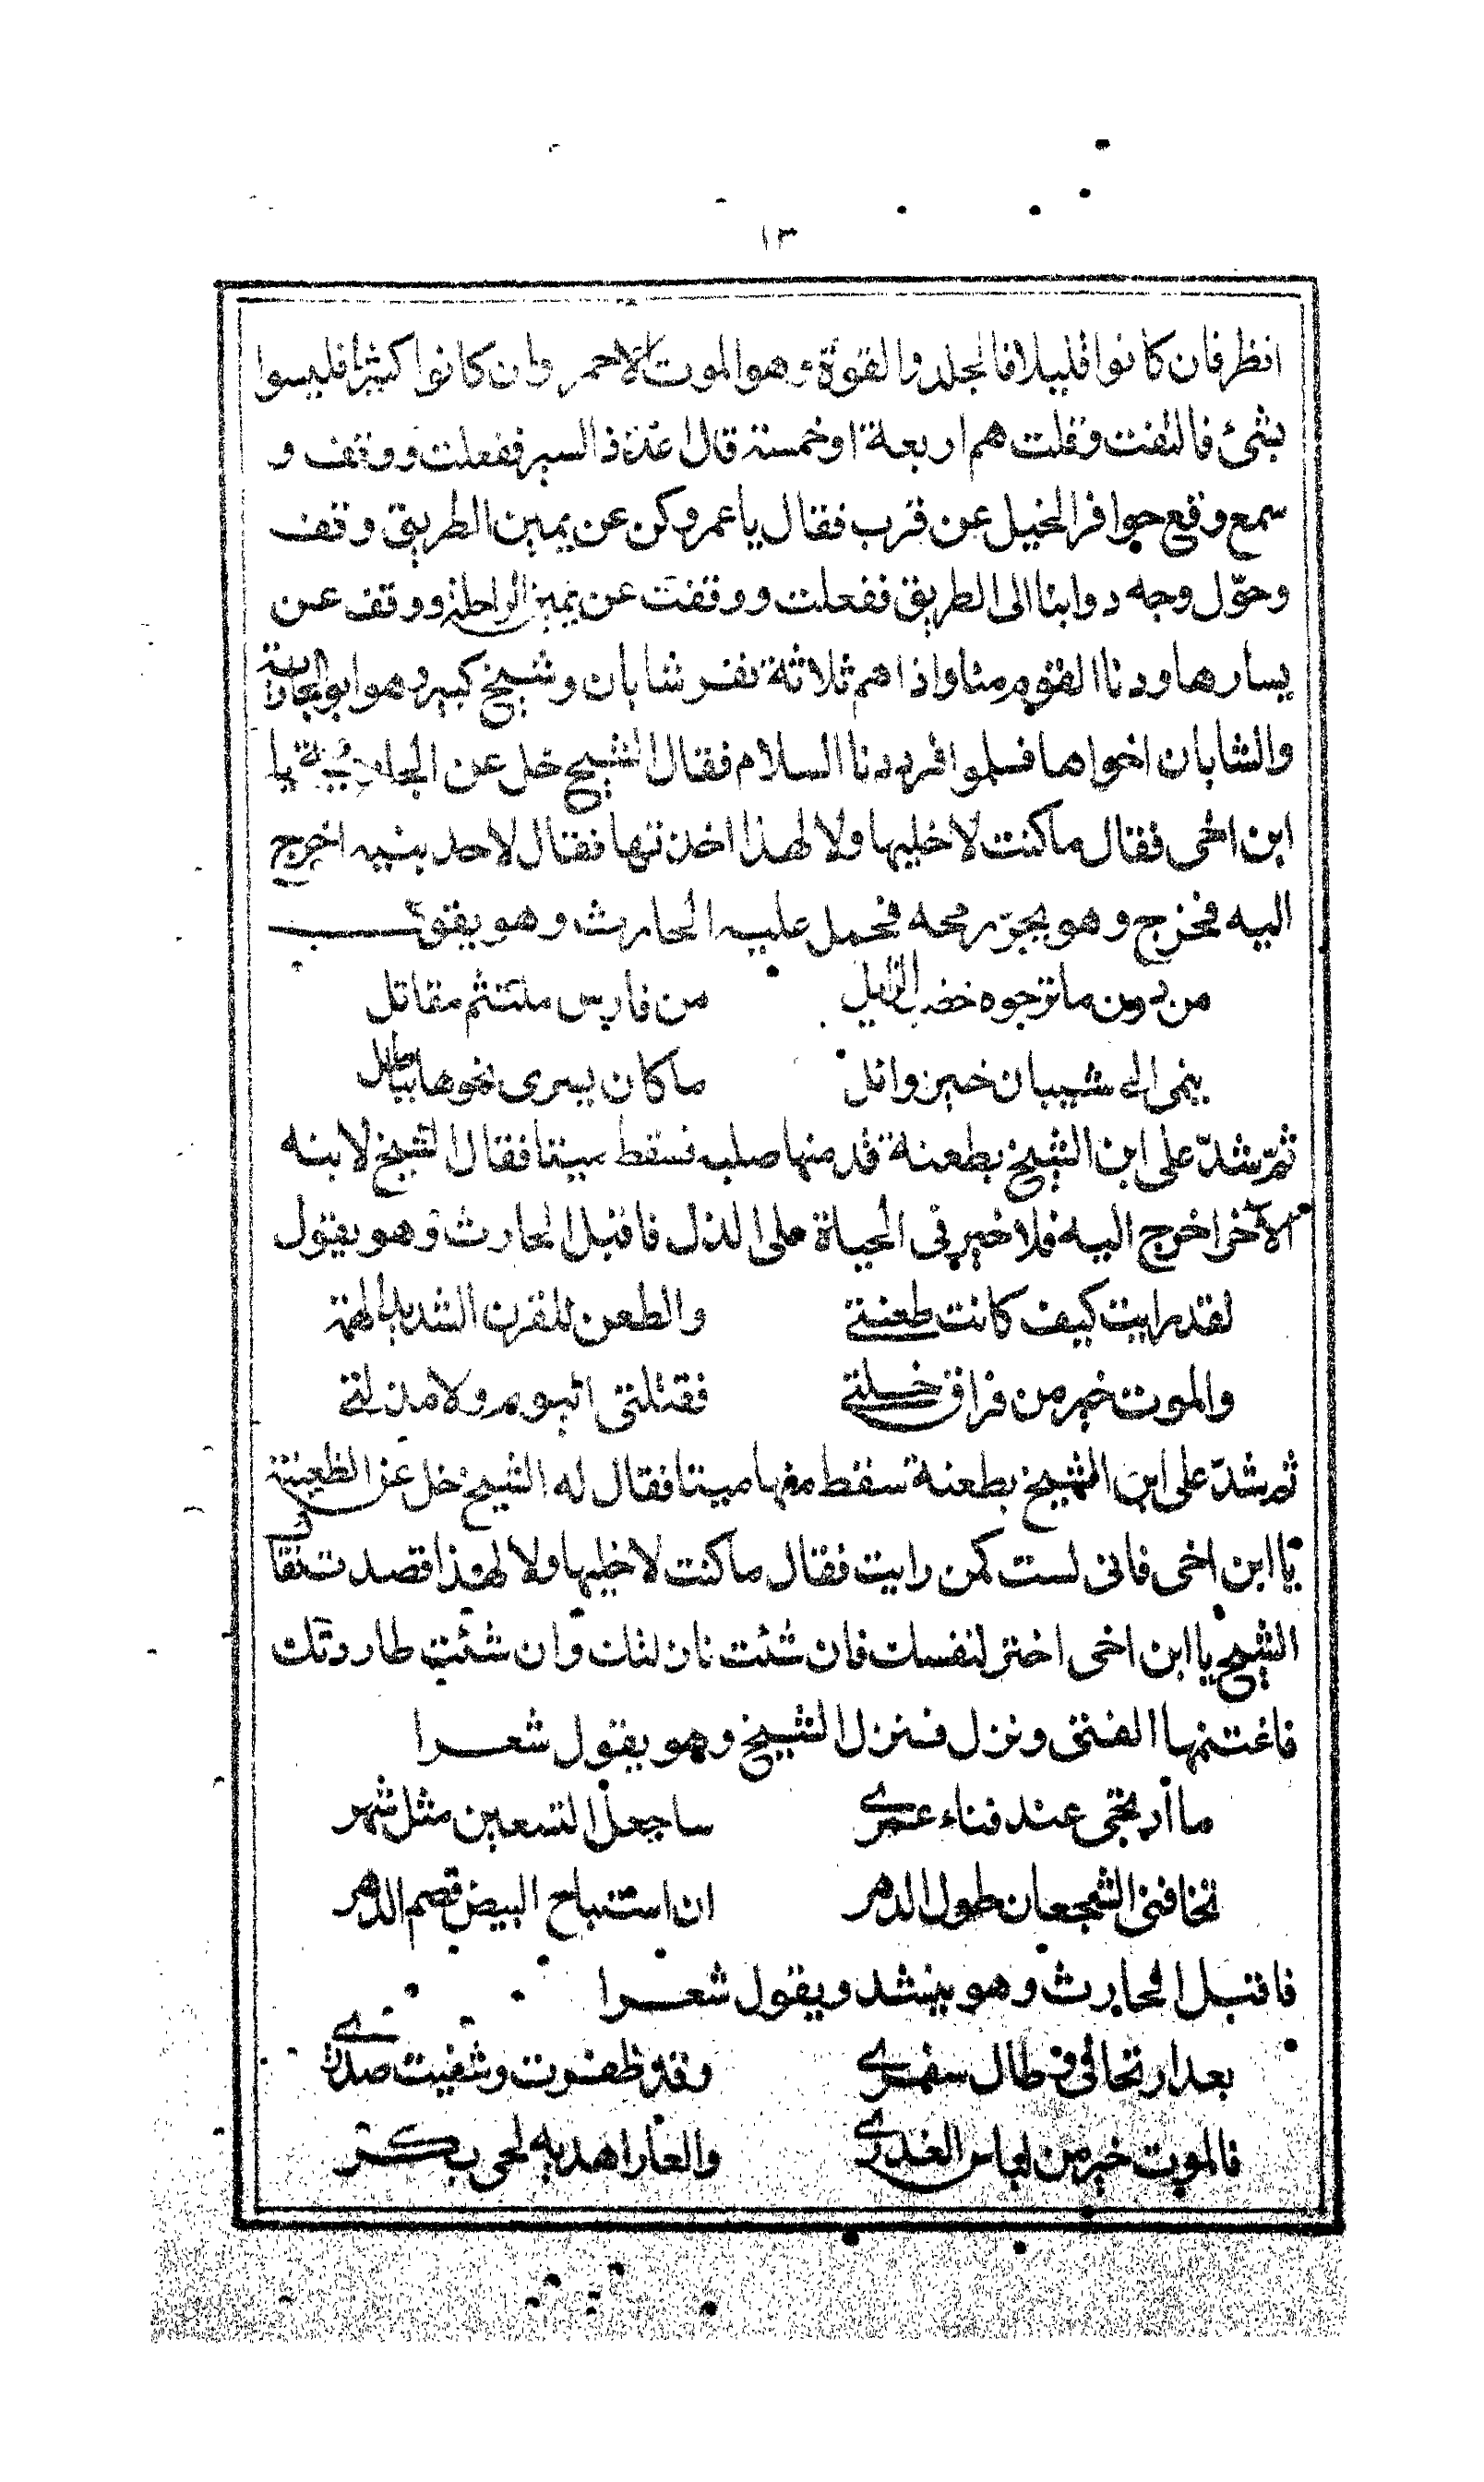 ١٣
انظر فان كانوا قليلا فالجلد والقوة وهو الموت الاحمر وان كانوا كثيرا فليسوا
بشئ فالتفت وقلت هم اربعة اوخمسة قال اغذذ السير ففعلت ووقف و
سمع وقع حوافر الخيل عن قرب فقال يا عمرو كن عن يمين الطريق وقف
وحوّل وجه دوابنا الى الطريق ففعلت ووقفت عن يمين الراحلة ووقف عن
يسارها ودنا القوم منا واذا هم ثلاثة نفر شابان وشيخ كبير وهو ابو الجارية
والشابان اخواها فسلموا فرددنا السلام فقال الشيخ خل عن الجارية يا
ابن اخى فقال ماكنت لاخليها ولا لهذا اخذتها فقال لاحد بنيه اخرج
اليه فخرج وهو يجرّ رمحه فحمل عليه الحارث وهو يقول
من دون ماترجوه خضب الذابل من فارس ملتثم مقاتل
ينمى الى شيبان خير وائل ماكان يسرى نحوها بباطل
ثمّ شدّ على ابن الشيخ بطعنة قد منها صلبه فسقط ميتا فقال الشيخ لابنه
الآخر اخرج اليه فلا خير فى الحياة على الذل فاقبل الحارث وهو يقول
لقد رايت كيف كانت طعنتى والطعن للقرن الشديد الهمة
والموت خير من فراق خلتى فقتلتى اليوم ولا مذلتى
ثم شدّ على ابن الشيخ بطعنة سقط منها ميتا فقال له الشيخ خل عن الظعينة
يا ابن اخى فانى لست كمن رايت فقال ماكنت لاخليها ولا لهذا قصدت فقال
الشيخ يا ابن اخى اختر لنفسك فان شئت نازلتك وان شئت طاردتك
فاغتنمها الفتى ونزل فنزل الشيخ وهو يقول شعرا
ما أرتجى عند فناء عمرى ساجعل التسعين مثل شهر
تخافنى الشجعان طول الدهر ان استباح البيض قصم الدهر
فاقبل الحارث وهو ينشد ويقول شعرا
بعد ارتحالى وطال سفرى وقد ظفرت وشفيت صدرى
فالموت خير من لباس الغدرى والعار اهديه لحى بكر